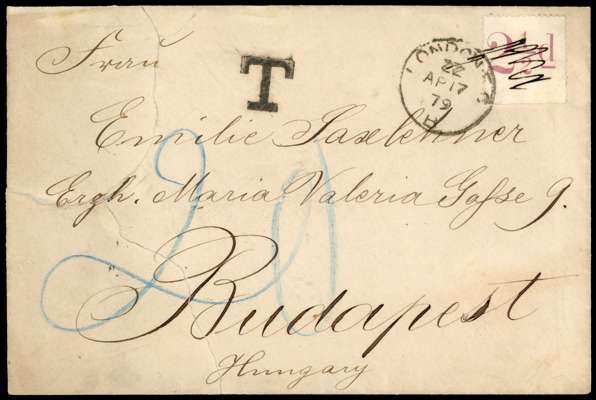 Frau
T
LONDON E.C
ZZ
AP 17
79
2½d
Emilie Saxlehner
Erzh. Maria Valeria Gasse 9.
20
Budapest
Hungary